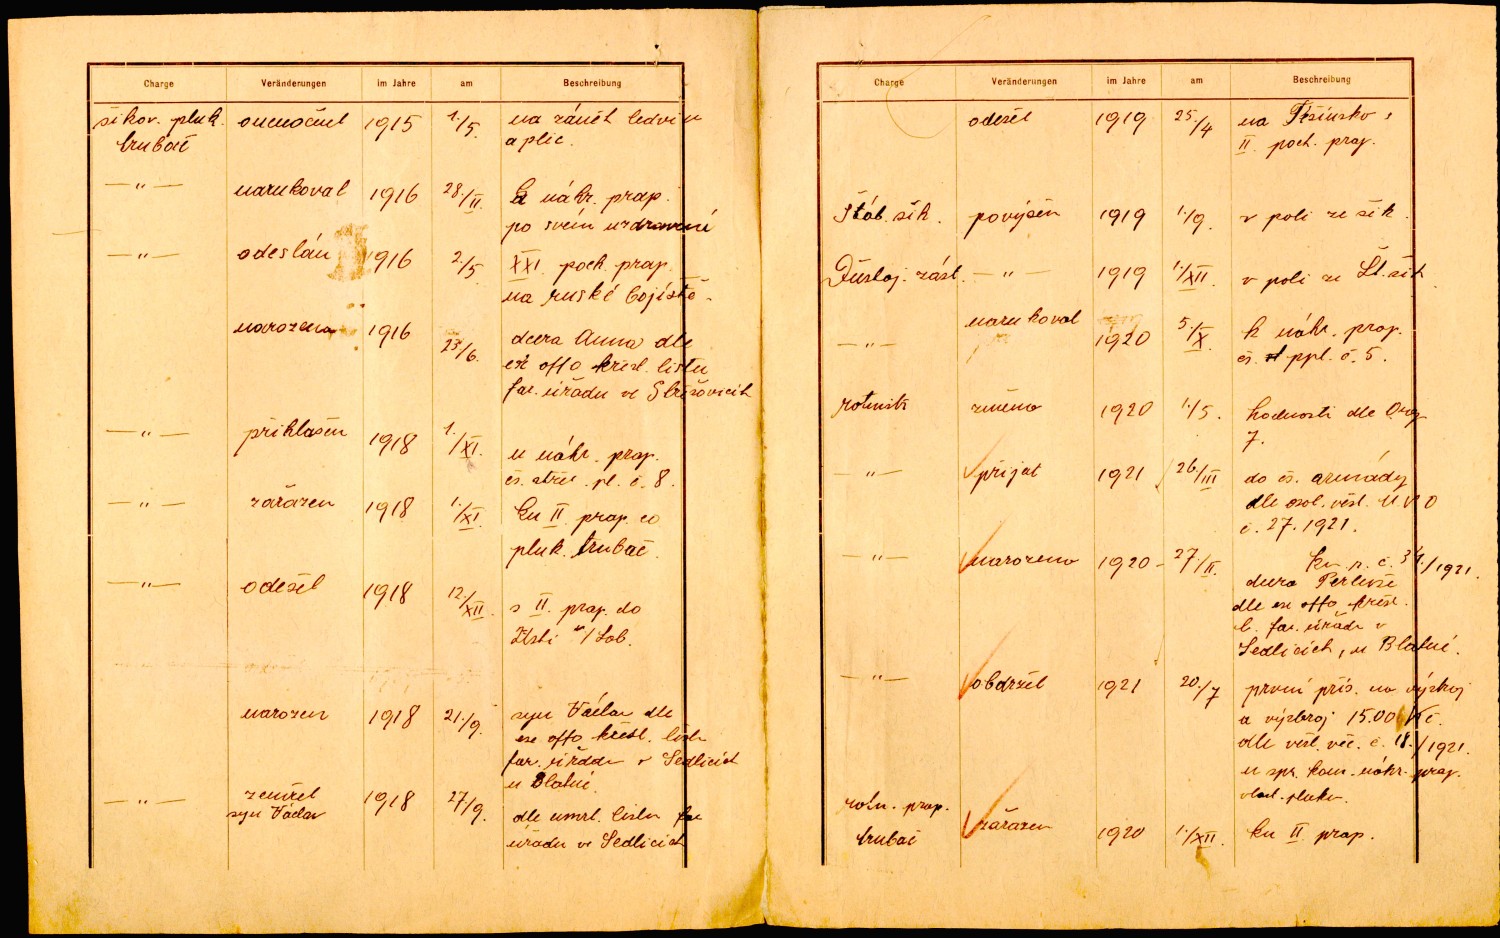 Charge Veränderungen im Jahre am Beschreibung
šikov. pluk. onemocněl 1915 1./5. na zánět ledvin
trubač a plic.
—„— narukoval 1916 28./II. k náhr. prap.
po svém uzdravení
—„— odeslán 1916 2./5 XXI. poch. prap.
na ruské bojiště.
narozena 1916 23/6. dcera Anna dle
ex offo křest. listu
far. úřadu ve Střížovicích
—„— přihlášen 1918 1./XI. u náhr. prap.
čs. střel. pl. č. 8.
—„— zařazen 1918 1./XI. ku II. prap. co
pluk. trubač.
—„— odešel 1918 12./XII. s II. prap. do
Ústí n/Lab.
narozen 1918 21./9. syn Václav dle
ex offo křest. listu
far. úřadu v Sedlicích
u Blatné.
—„— zemřel 1918 27/9. dle úmrt. listu far
syn Václav úřadu ve Sedlicích
Charge Veränderungen im Jahre am Beschreibung
odešel 1919 25./4 na Těšínsko s
II. poch. prap.
Štáb. šik. povýšen 1919 1./9. v poli ze šik.
Důstoj. zást. —„— 1919 1./XII. v poli ze Št. šik.
narukoval
—„— 1920 5./X. k náhr. prap.
čs. ppl. č. 5.
rotmistr změna 1920 1./5. hodnosti dle Org.
7.
—„— přijat 1921 26./III do čs. armády
dle osob. věst. M.N.O
č. 27. 1921.
—„— narozena 1920 27./II. ku n. č. 34./1921.
dcera
dle ex offo křest.
l. far. úřadu v
Sedlicích, u Blatné.
—„— obdržel 1921 20./7 první přís. na výstroj
a výzbroj 15.00 Kč.
dle věst. věc. č. 18./1921.
u spr. kom. náhr. prap.
vlast. pluku.
rotm. prap.
trubač zařazen 1920 1./XII. ku II. prap.